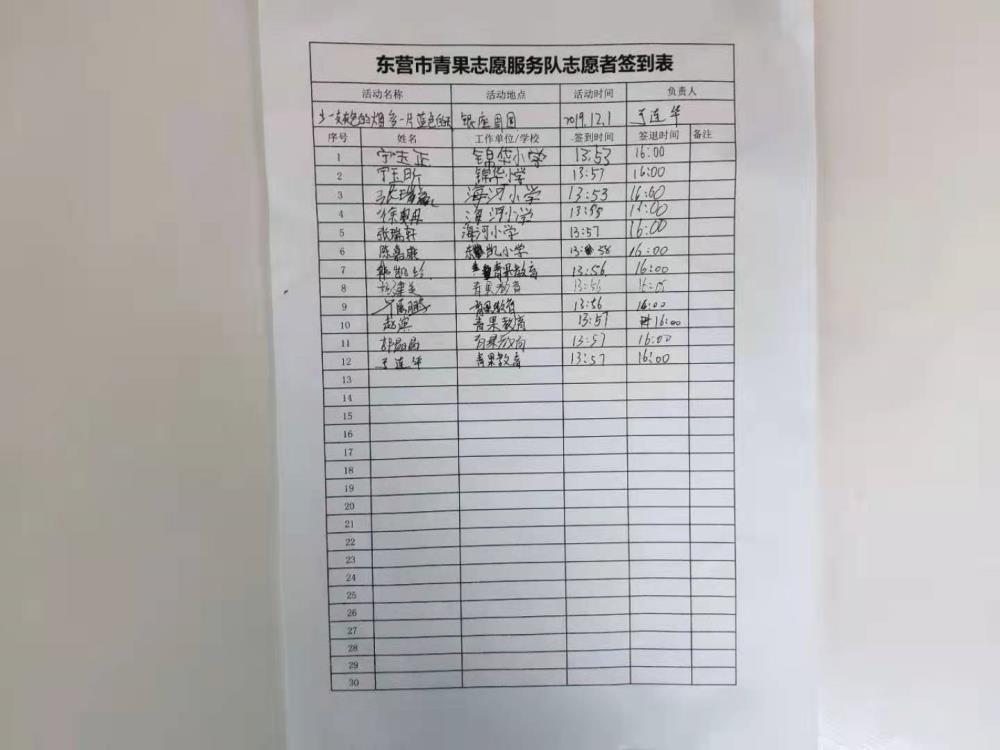 东营市青果志愿服务队志愿者签到表
活动名称 活动地点 活动时间 负责人
少一支灰色的烟多一片蓝色的天 银座周围 2019.12.1 于连华
序号 姓名 工作单位/学校 签到时间 签退时间 备注
1 宁玉正 锦华小学 13:53 16:00
2 宁玉昕 锦华小学 13:57 16:00
3 张瑞 海河小学 13:53 16:00
4 徐 海河小学 16:00
5 张瑞轩 海河小学 13:57 16:00
6 陈嘉 东凯小学 13: 58 16:00
7 青果教育 13:56 16:00
8 青果教育 13:56
9 青果教育 13:56 16:00
10 赵滨 青果教育 13:57 16:00
11 胡晶晶 青果教育 13:57 16:00
12 于连华 青果教育 13:57 16:00
13
14
15
16
17
18
19
20
21
22
23
24
25
26
27
28
29
30